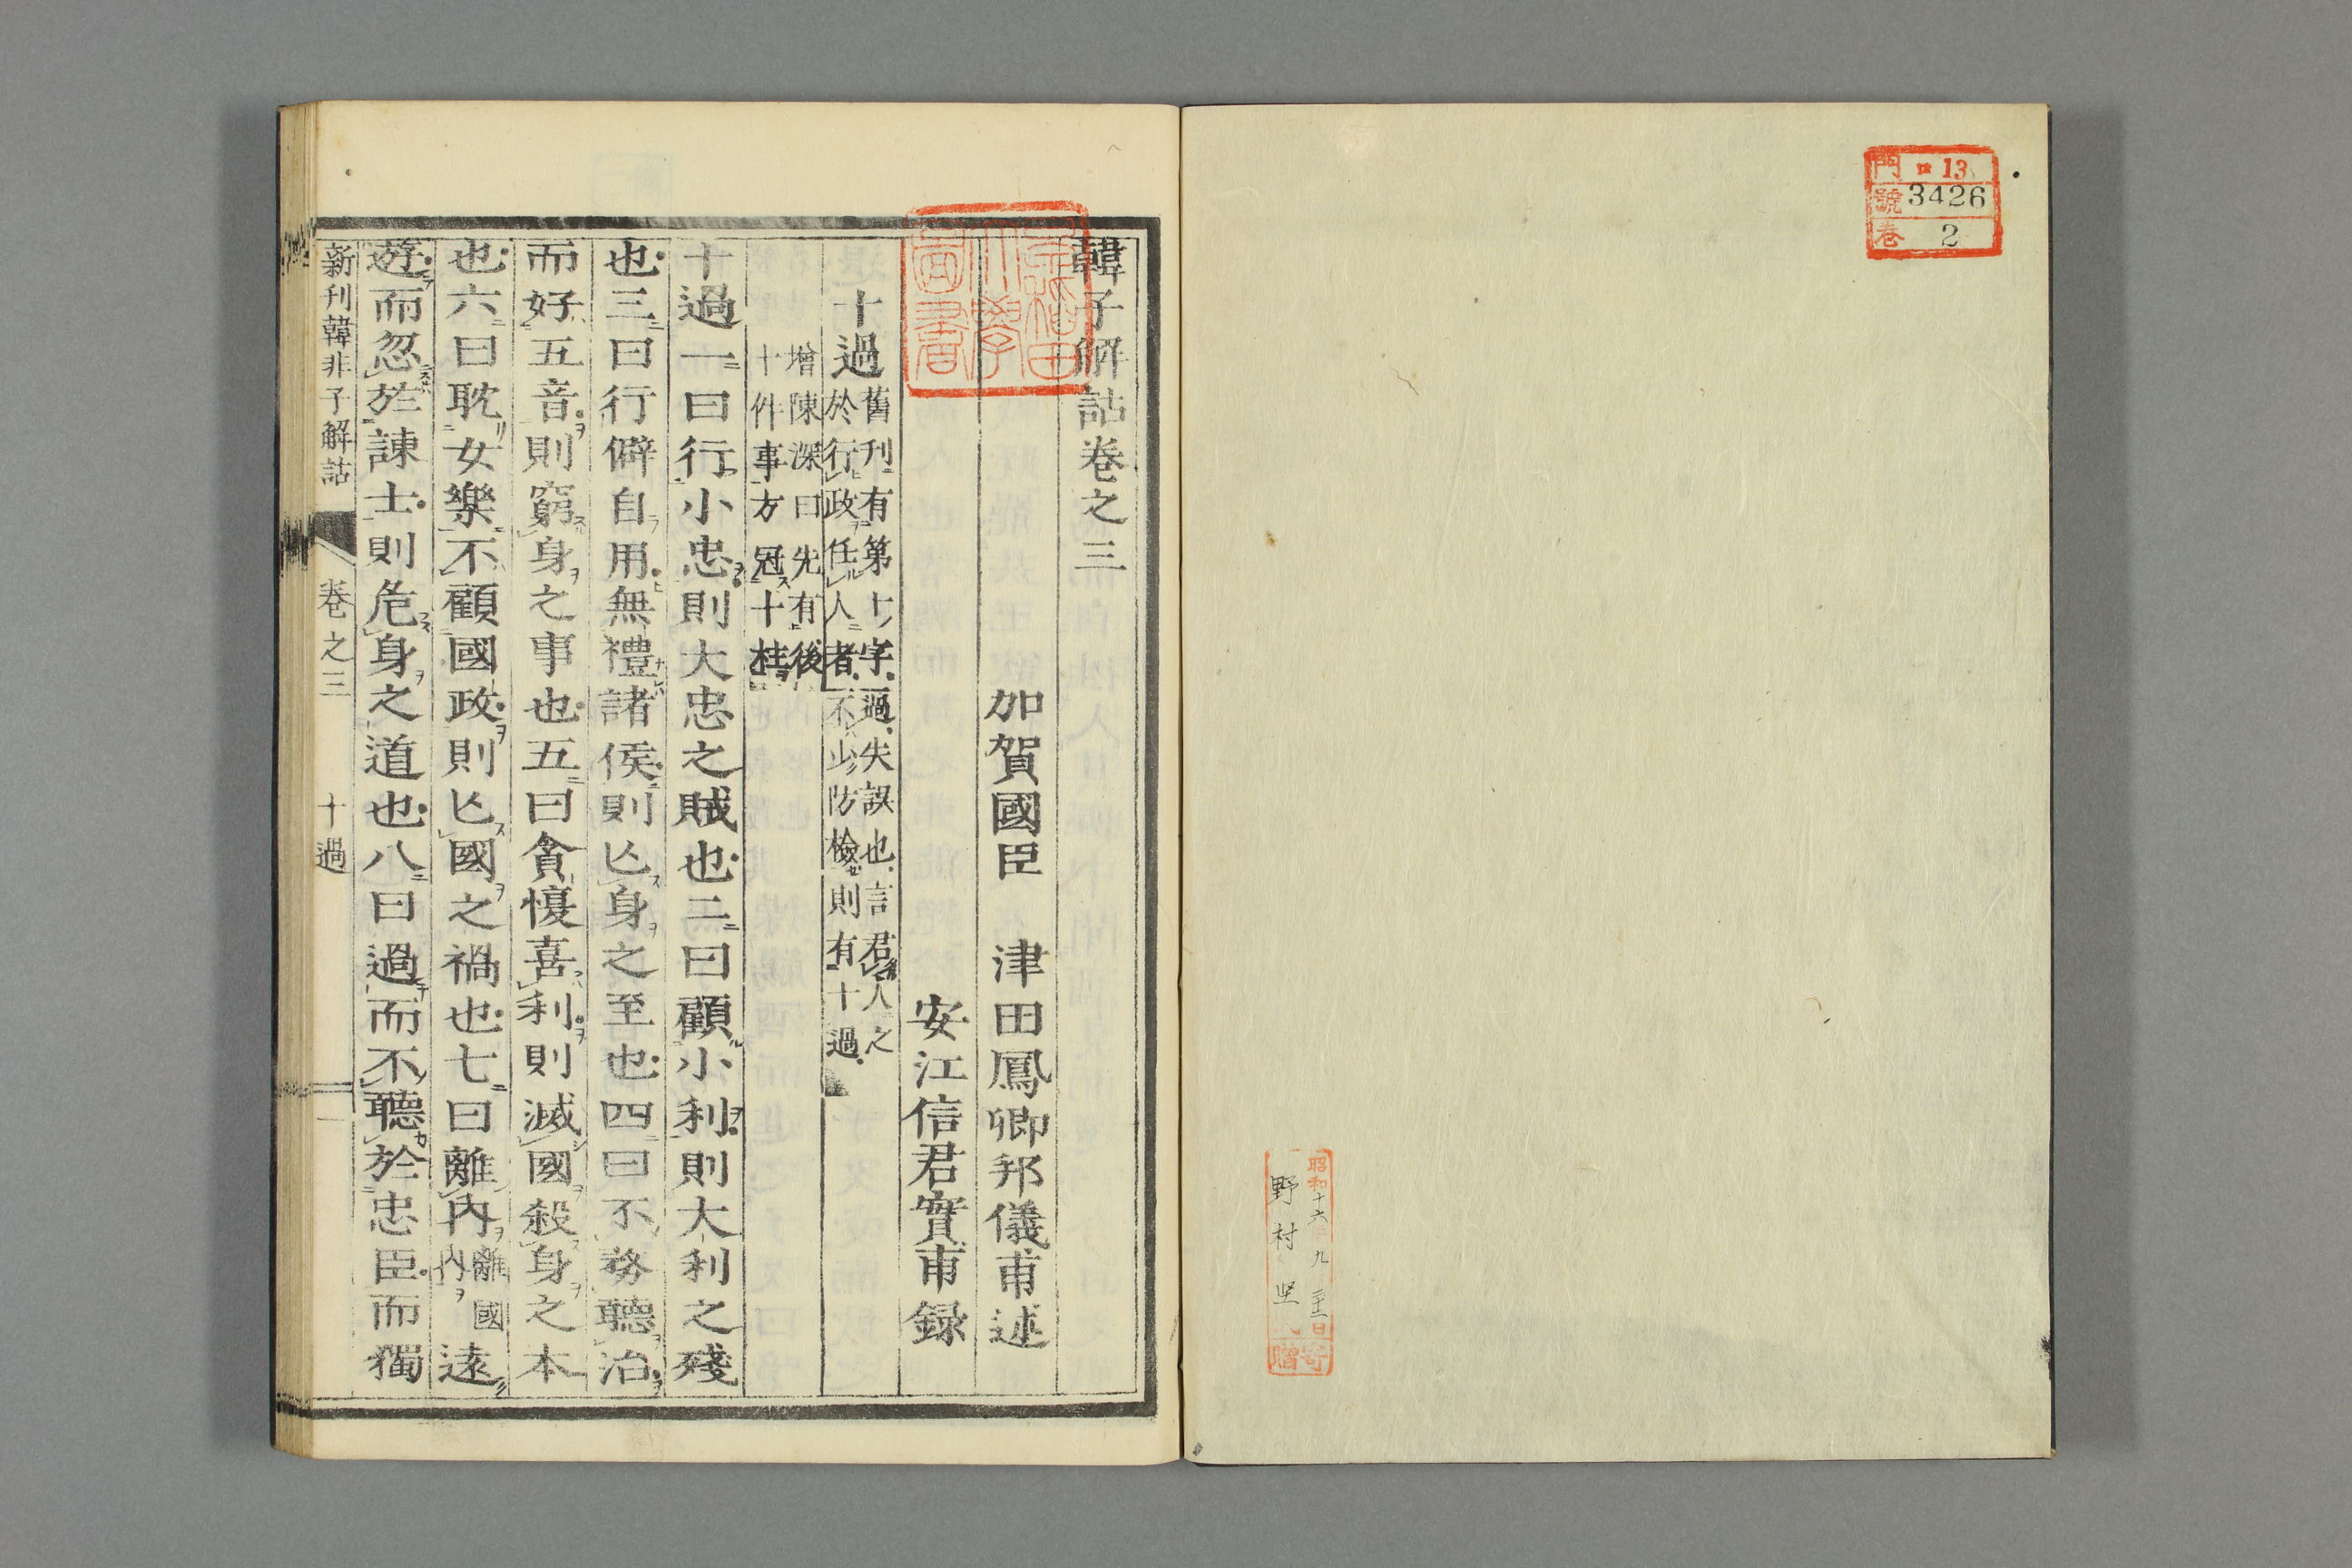 門 ロ13
號 3426
巻 2
昭和十六 九 日寄
野村 贈
韓子解詁卷之三
加賀國臣 津田鳳卿邦儀甫述
安江信君實甫録
早稲田
大學
圖書
十過 舊刊有第十字過失誤也言君人之
於行政任人者不少防檢則有十過
增陳深曰先有後
十件事方冠十柱
十過一曰行小忠則大忠之賊也二曰顧小利則大利之殘
也三曰行僻自用無禮諸侯則亾身之至也四曰不務聽治
而好五音則窮身之事也五曰貪愎喜利則滅國殺身之本
也六曰耽女樂不顧國政則亾國之禍也七曰離內離國內遠
遊而忽於諫士則危身之道也八曰過而不聽於忠臣而獨
新刊韓非子解詁 卷之三 十過 一